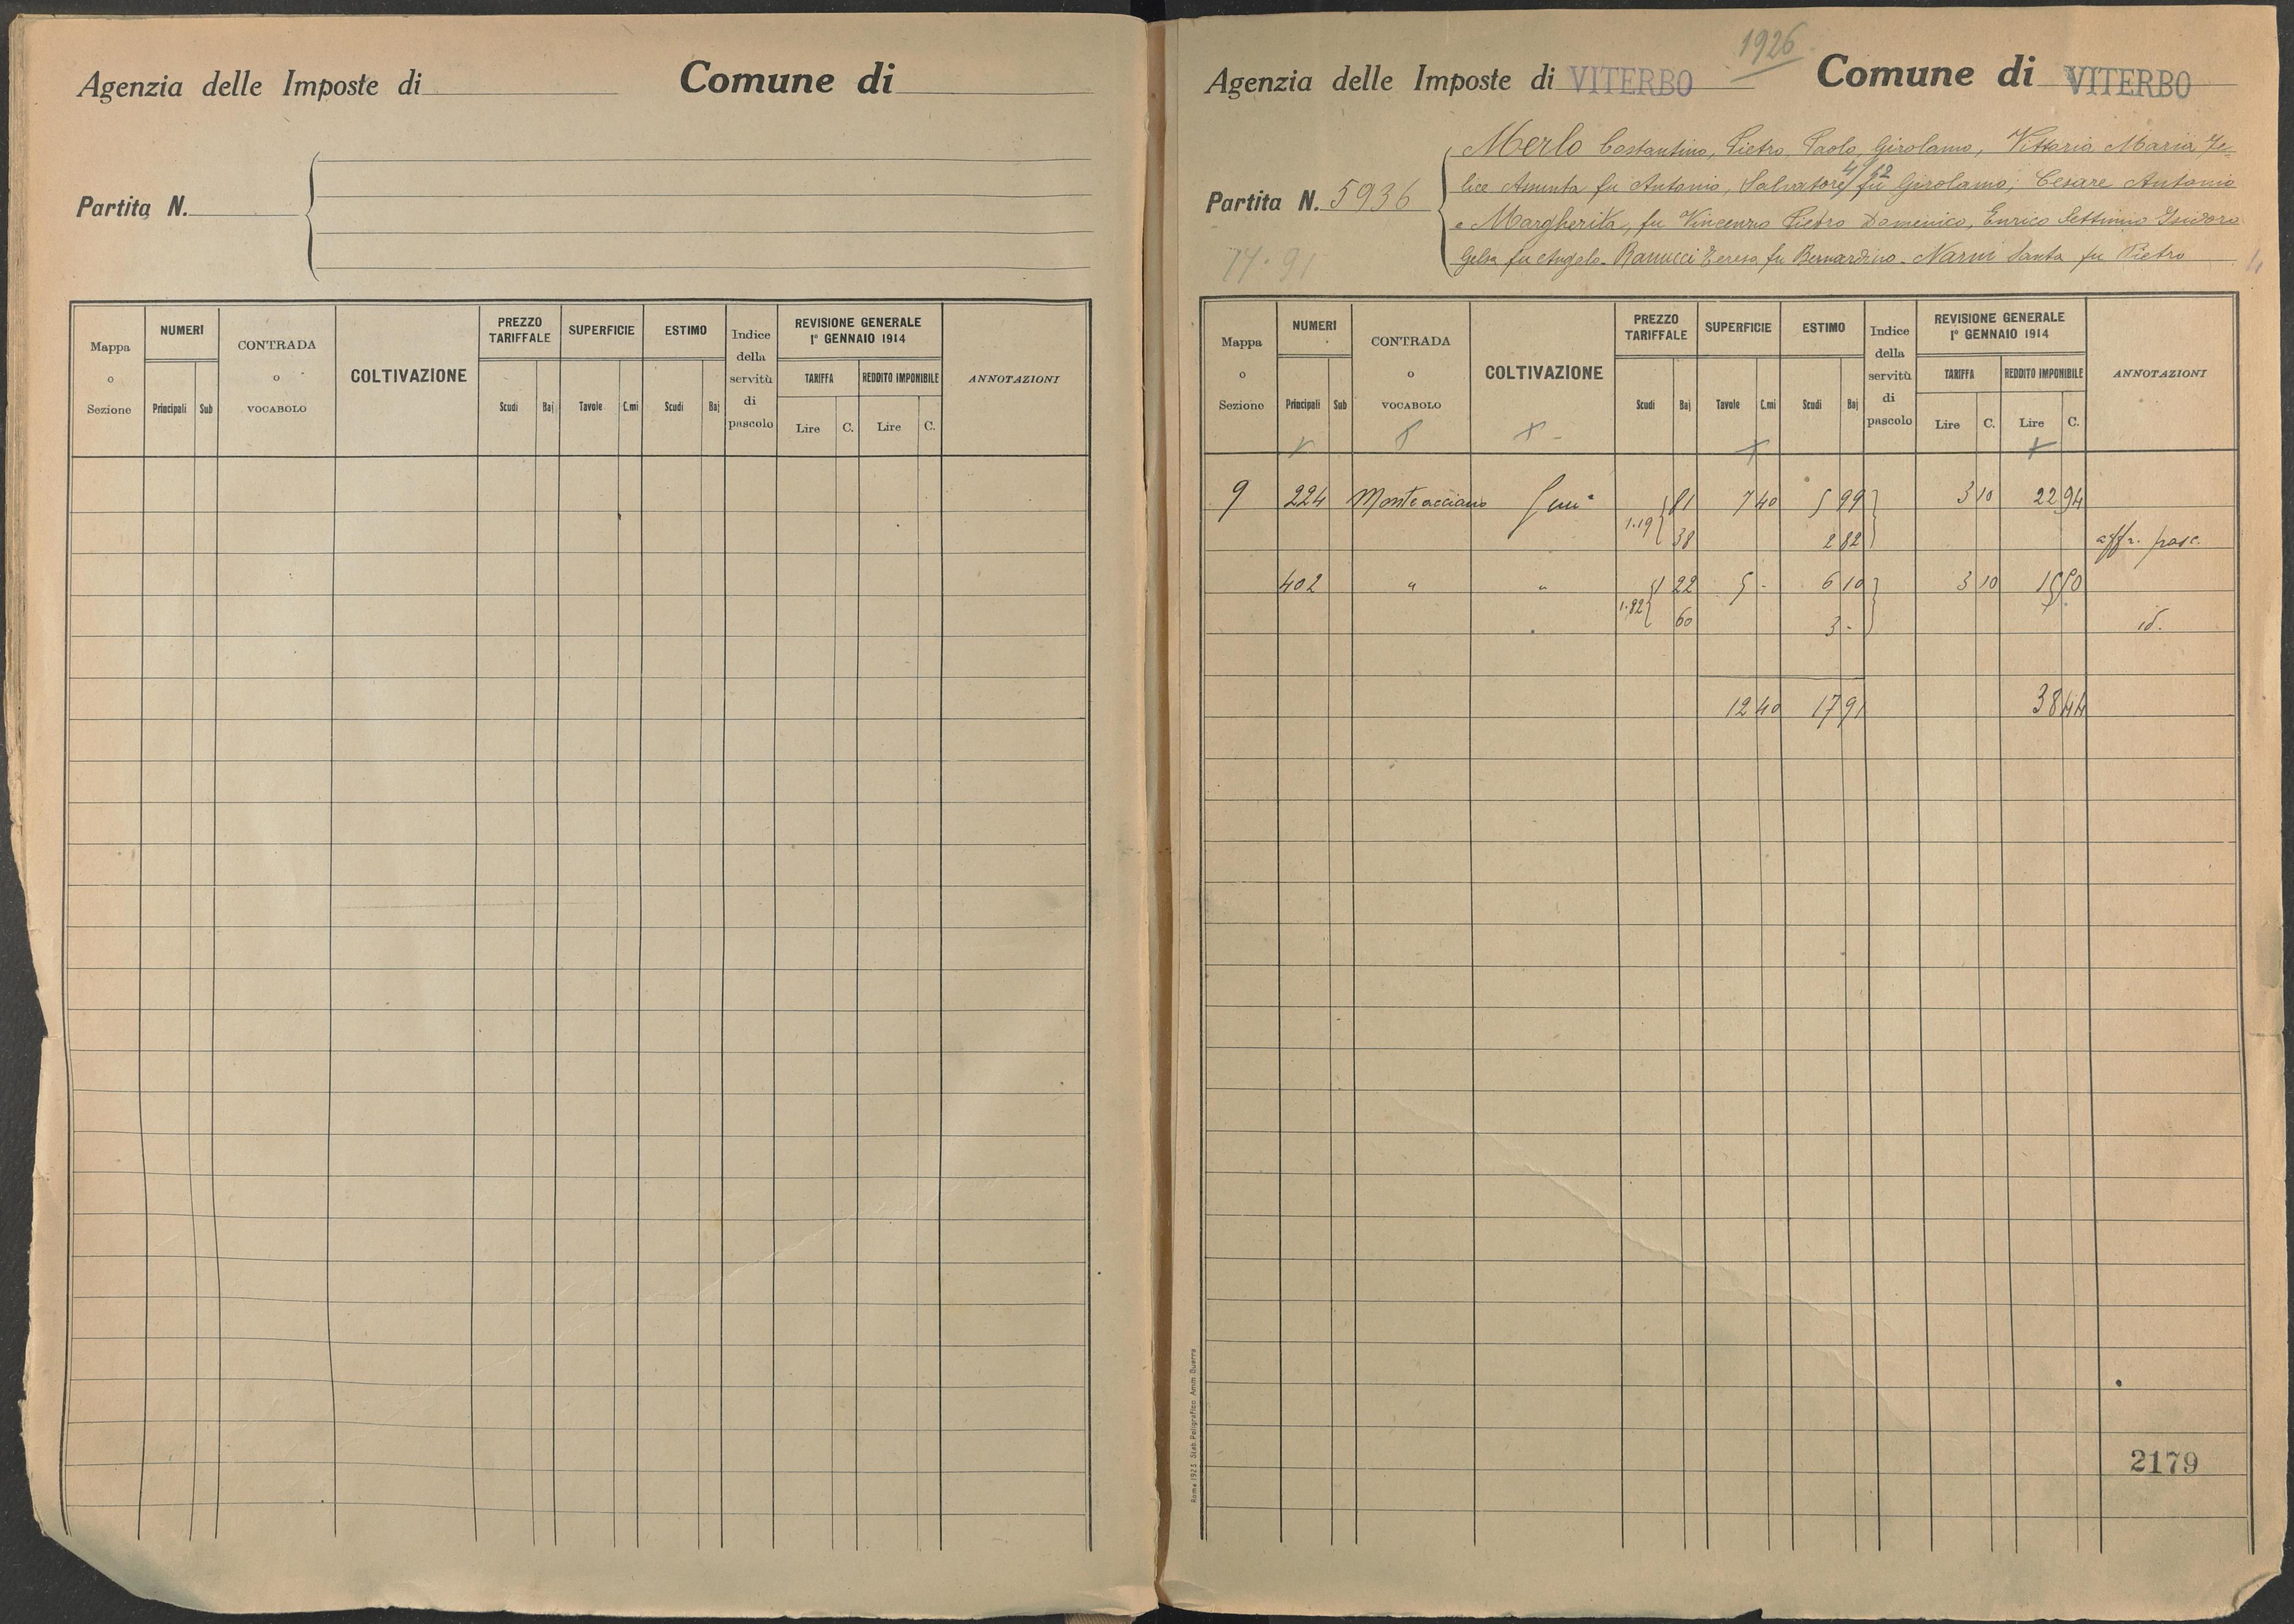 Agenzia delle Imposte di Comune di
Partita N.
Mappa o Sezione NUMERI Principali Sub CONTRADA o VOCABOLO COLTIVAZIONE PREZZO TARIFFALE Scudi Baj SUPERFICIE Tavole C.mi ESTIMO Scudi Baj Indice della servitù di pascolo REVISIONE GENERALE 1° GENNAIO 1914 TARIFFA Lire C. REDDITO IMPONIBILE Lire C. ANNOTAZIONI
1926
Agenzia delle Imposte di VITERBO Comune di VITERBO
Merlo Costantino, Pietro, Paolo, Girolamo, Vittoria Maria Fe-
lice Assunta fu Antonio, Salvatore fu Girolamo; Cesare Antonio
Partita N. 5936
e Margherita, fu Vincenzo Pietro Domenico, Enrico Settimio Isidoro
Gelsa fu Angelo - Ranucci Teresa fu Bernardino - Narni Santa fu Pietro
Mappa o Sezione NUMERI Principali Sub CONTRADA o VOCABOLO COLTIVAZIONE PREZZO TARIFFALE Scudi Baj SUPERFICIE Tavole C.mi ESTIMO Scudi Baj Indice della servitù di pascolo REVISIONE GENERALE 1° GENNAIO 1914 TARIFFA Lire C. REDDITO IMPONIBILE Lire C. ANNOTAZIONI
9 224 Monteacciano 81 7 40 5 99 3 10 22 94
1.19 38 2 82 affr. pasc.
402 " " 1 22 5 - 6 10 3 10 15 50
1.82 60 3 - id.
12 40 17 91 38 44
2179
Roma 1923 Stab. Poligrafico Amm. Guerra